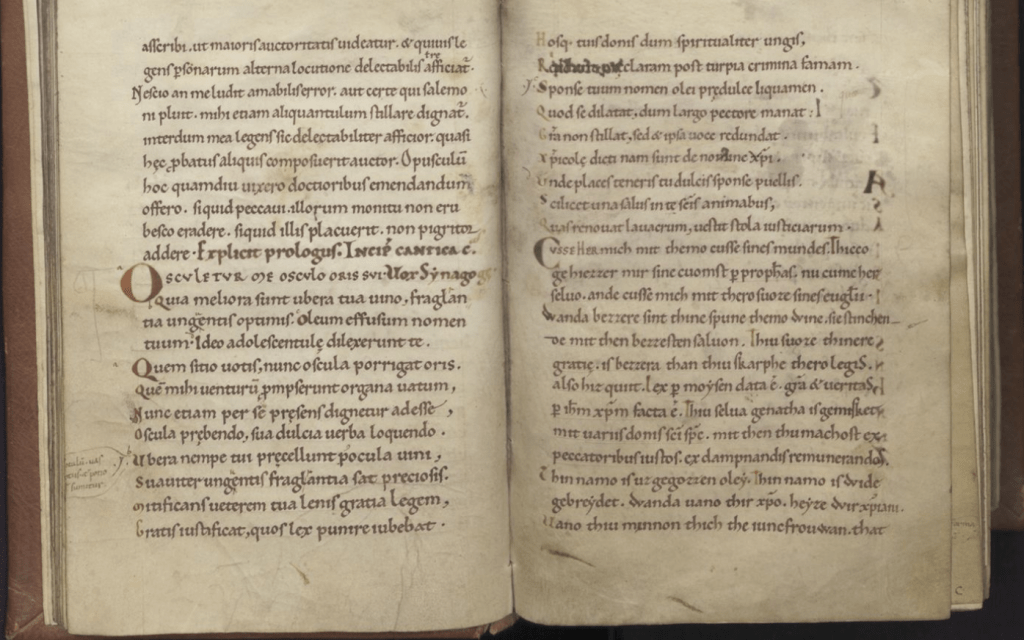 asscribi. ut maioris auctoritatis uideatur. & quiuis le
gens p̱sonarum alterna locutione delectabilis afficiat᷑.
Nescio an me ludit amabilis error. aut certe qui salemo
ni pluit. mihi etiam aliquantulum stillare dignat᷑.
interdum mea legens sic delectabiliter afficior. quasi
hęc ꝓbatus aliquis composuerit auctor. Opusculū
hoc quamdiu uixero doctioribus emendandum
offero. siquid peccaui. illorum monitu non eru
besco eradere. siquid illis placuerit. non pigritor
addere. Explicit prologus. Incip̄ cantica c̄.
Osculetur me osculo oris sui. Vox Synagogę
Quia meliora sunt ubera tua uino, fraglan
tia ungentis optimis. Oleum effusum nomen
tuum. Ideo adolescentulę dilexerunt te.
Quem sitio uotis, nunc oscula porrigat oris.
Quē mihi uenturū ꝓmpserunt organa uatum,
Nunc etiam per sē pręsens dignetur adesse,
Oscula prębendo, sua dulcia uerba loquendo.
Vbera nempe tui pręcellunt pocula uini,
Suauiter ungentis fraglantia sat preciosis.
Mitificans ueterem tua lenis gratia legem,
Gratis iustificat, quos lex punire iubebat.
Hosq· tuis donis dum spiritualiter ungis,
claram post turpia crimina famam.
Sponse tuum nomen olei prędulce liquamen.
Quod se dilatat, dum largo pectore manat:
Grā non stillat, sed & ipsa uoce redundat.
Xp̄icolę dicti nam sunt de nomine Xp̄i.
Vnde places teneris tu dulcis sponse puellis.
Scilicet una salus in te sc̄is animabus,
Quas renouat lauacrum, uestit stola iusticiarum.
Cusser her mich mit themo cusse sines mundes. Thicco
gehiezzer mir sine cuomst ꝑ proph̄as. nu cume her
selvo. ande cusse mich mit thero suoze sines eugl̄ii.
Wanda bezzere sint thine spune themo wine. sie stinchen
de mit then bezzesten saluon. Thiu suoze thinere
gratię. is bezzera than thiu skarphe thero legis.
also hiz quit. Lex ꝑ moysen data ē. grā & veritas
ꝑ ih̄m xp̄m facta ē. Thiu selva genatha is gemisket
mit variis donis sc̄i sp̄c. mit then thu machost ex
peccatoribus iustos. ex dampnandis remunerandos.
Thin namo is uz gegozzen oley. Thin namo is wide
gebreydet. Wanda vano thir xp̄o. heyze wir xp̄iani.
Vano thiu minnon thich the iuncfrouwan. that